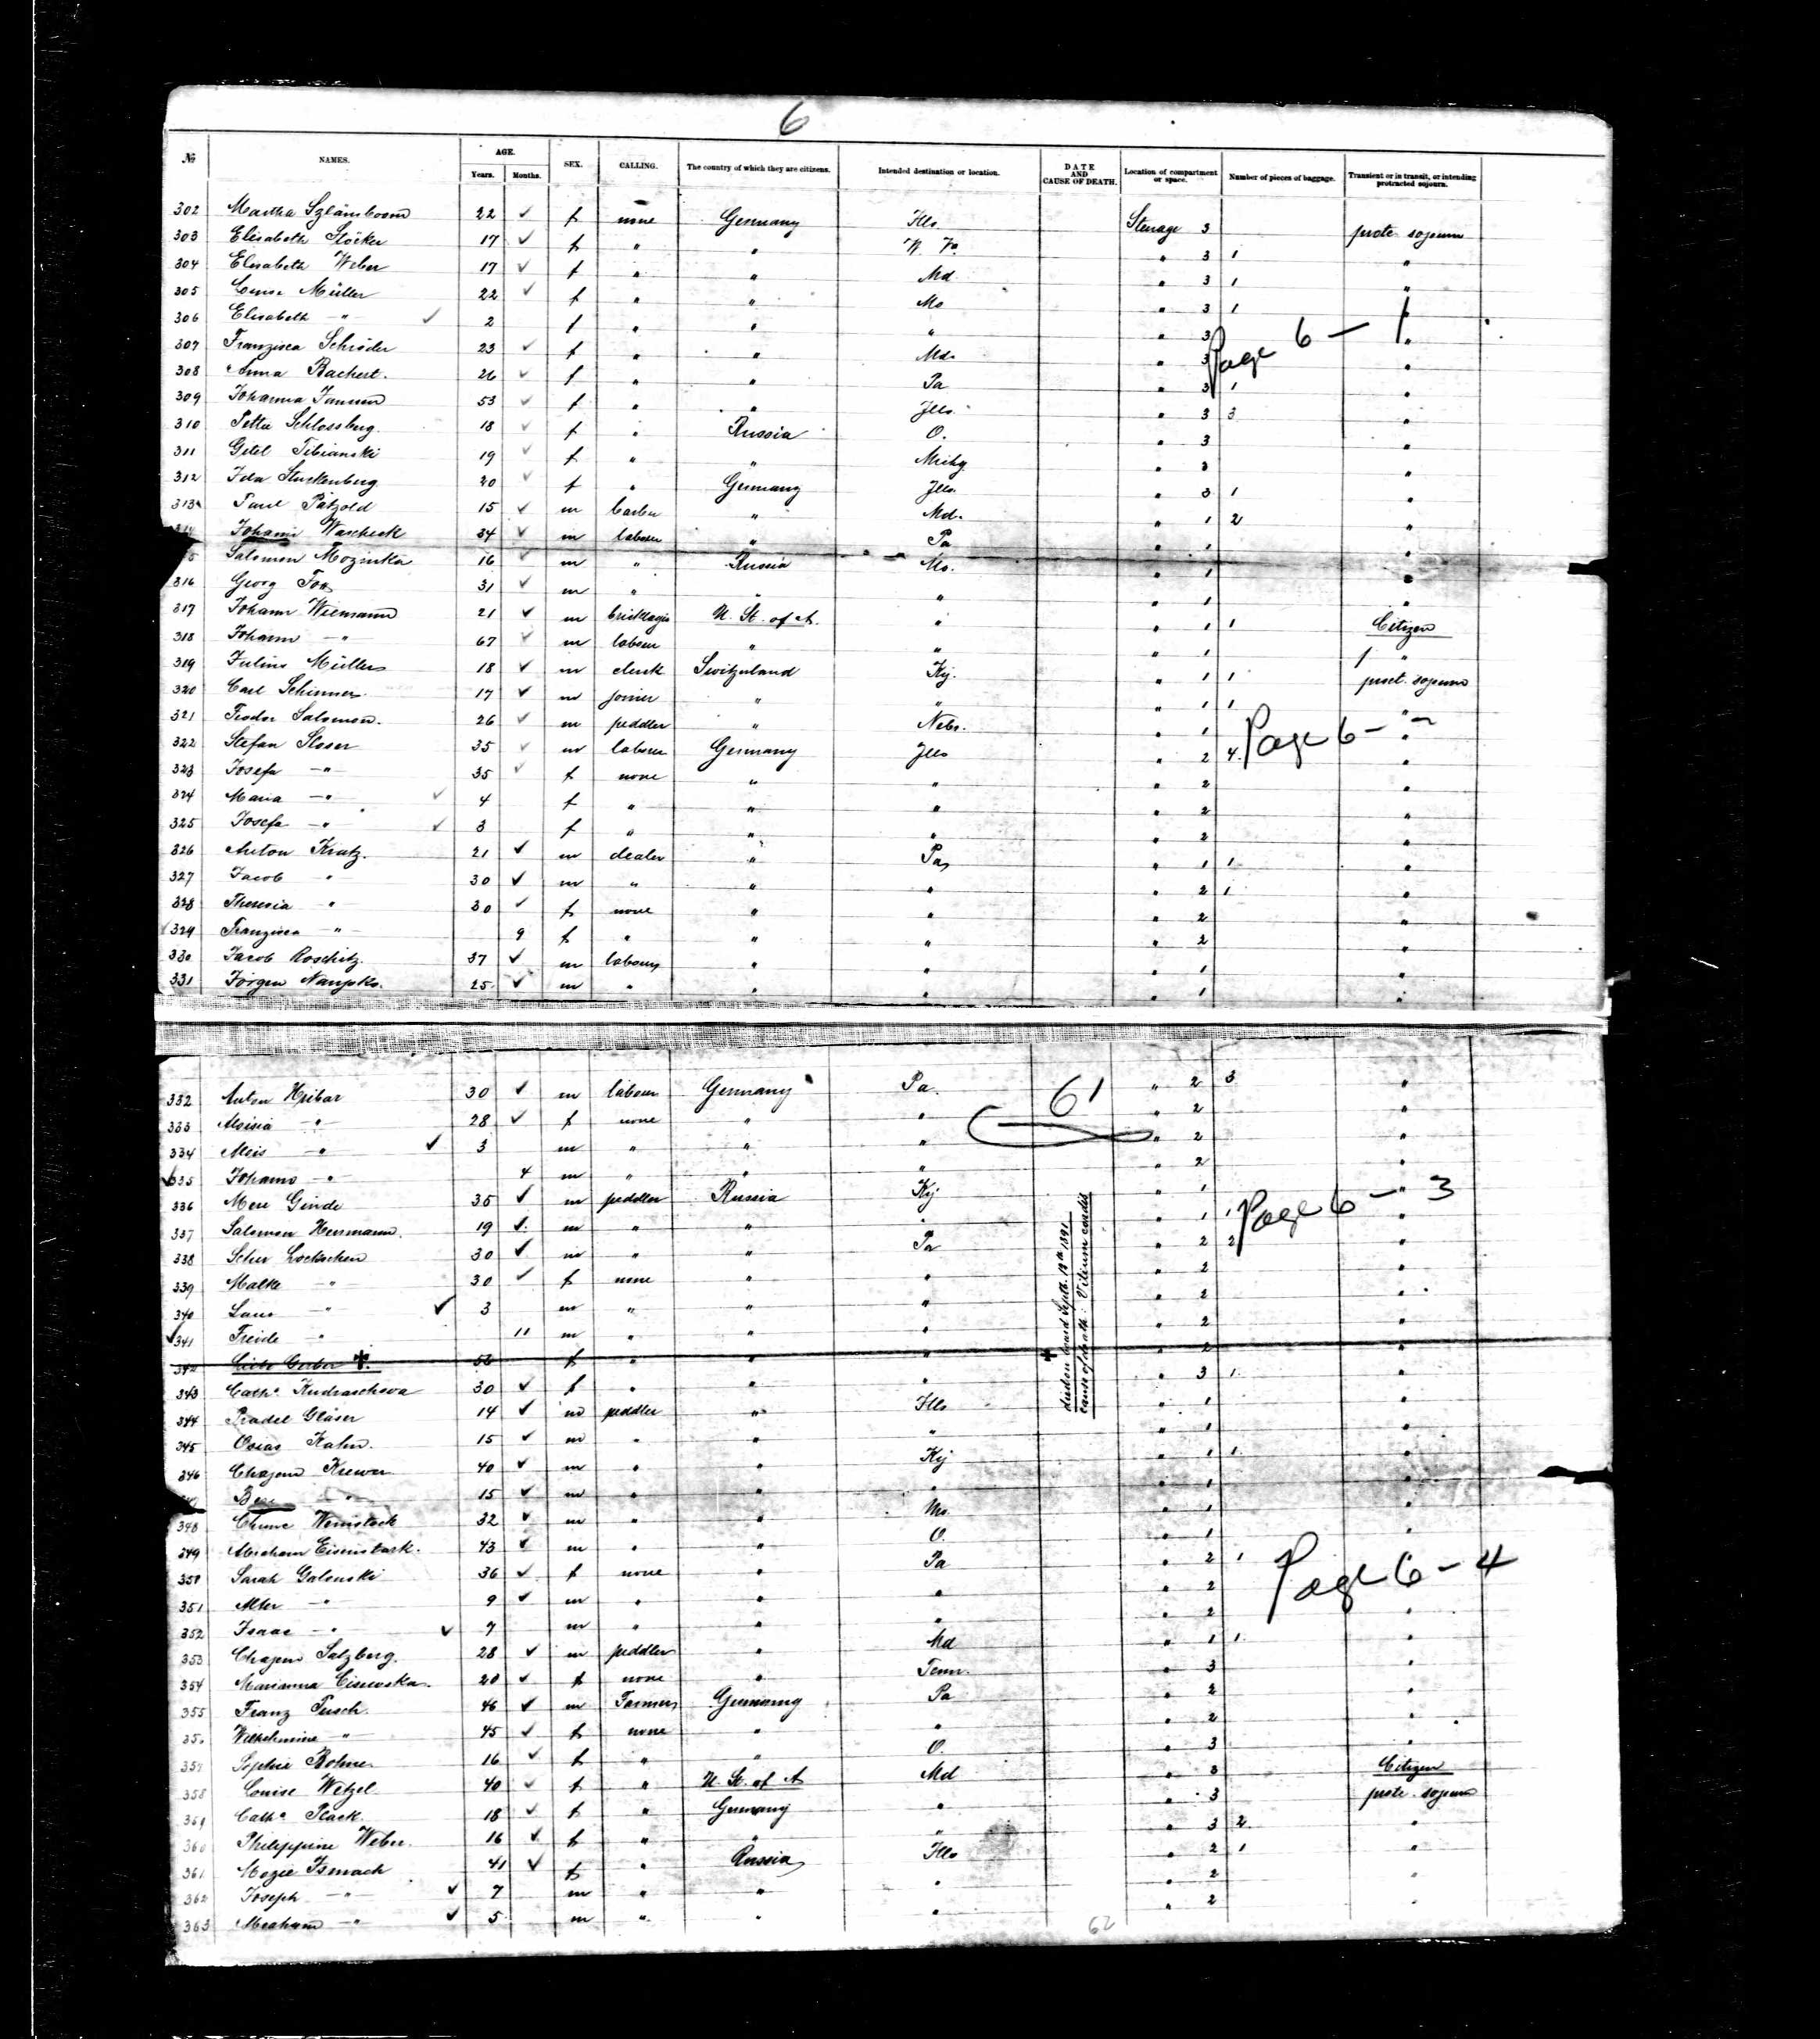 6
№ NAMES. AGE. Years. Months. SEX. CALLING. The country of which they are citizens. Intended destination or location. DATE AND CAUSE OF DEATH. Location of compartment or space. Number of pieces of baggage. Transient or in transit, or intending protracted sojourn.
302 Martha 22 ✓ f none Germany Ills. Steerage 3 prote. sojourn
303 Elisabeth Stöcker 17 ✓ f " " " 3 1 "
304 Elisabeth Weber 17 ✓ f " " Md. " 3 1 "
305 Müller 22 ✓ f " " Mo " 3 1 "
306 Elisabeth —"— ✓ 2 f " " " " 3 "
Page 6 — 1
307 Franzisca Schröder 23 ✓ f " " Md. " 3 "
308 Anna Bachert. 26 ✓ f " " Pa " 3 1 "
309 Johanna Jansen 53 ✓ f " " Ills. " 3 3 "
310 Schlossberg. 18 ✓ f " Russia O. " 3 "
311 Gitel 19 ✓ f " " " 3 "
312 Ida Sturkenberg 20 ✓ f " Germany Ills. " 3 1 "
313 Paul Pätzold 15 ✓ m " Md. " 1 2 "
Johann Wascheck 34 ✓ m labourer " Pa " 1 "
5 Salomon 16 ✓ m " Russia Mo. " 1 "
316 Georg Fox 31 ✓ m " " " " 1 "
317 Johann Wiemann 21 ✓ m U. St. of A. " " 1 1 Citizen
318 Johann —"— 67 ✓ m labour " " " 1 "
319 Julius Müller 18 ✓ m clerk Switzerland Ky. " 1 1 proct. sojourn
320 Carl Schinner. 17 ✓ m joiner " " " 1 1 "
321 Salomon. 26 ✓ m peddler " Nebr. " 1 "
Page 6 - 2
322 Stefan 35 ✓ m labourer Germany Ills " 2 4. "
323 Josefa —"— 35 ✓ f none " " " 2 "
324 Maria —"— ✓ 4 f " " " " 2 "
325 Josefa —"— ✓ 3 f " " " " 2 "
326 Anton Kratz. 21 ✓ m dealer " Pa " 1 1 "
327 Jacob " 30 ✓ m " " " " 2 1 "
328 Theresia " 30 ✓ f none " " " 2 "
329 Franzisca " 9 f " " " " 2 "
330 Jacob Roschitz. 37 ✓ m labour " " " 1 "
331 Jörgen 25. ✓ m " " " " 1 "
332 Anton Hribar 30 ✓ m labour Germany Pa. 61 " 2 3 "
333 —"— 28 ✓ f none " " " 2 "
334 —"— ✓ 3 m " " " " 2 "
335 Johann —"— 4 m " " " " 2 "
336 Ginde 35 ✓ m peddler Russia Ky " 1 "
Page 6 - 3
337 Salomon Herrmann. 19 ✓ m " " " " 1 1 "
338 30 ✓ m " " Pa " 2 2 "
339 Malke —"— 30 ✓ f none " " " 2 "
340 —"— ✓ 3 m " " " " 2 "
341 Freide " 11 m " " " " 2 "
342 Gerber ✝. f " " " " 2 "
✝ died on board Septb. 18th 1891
cause of death: Vitium cordis
343 Cath. Kudrascheva 30 ✓ f " " " " 3 1. "
344 Gläser 14 ✓ m peddler " Ills " 1 "
345 Osias Kahn. 15 ✓ m " " " " 1 "
346 Krewer 40 ✓ m " " Ky " 1 1. "
" 15 ✓ m " " " " 1 "
348 32 ✓ m " " Mo " 1 "
349 Abraham 43 ✓ m " " O. " 1 "
350 Sarah Galenski 36 ✓ f none " Pa " 2 1 "
Page 6 - 4
351 Alter —"— 9 ✓ m " " " " 2 "
352 Isaac —"— ✓ 7 m " " " " 2 "
353 Salzberg. 28 ✓ m peddler " Md " 1 1. "
354 Marianna 20 ✓ f none " Tenn. " 3 "
355 Franz 46 ✓ m Farmer Germany Pa " 2 "
356 Wilhelmine " 45 ✓ f none " " " 2 "
357 Sophie Bohne 16 ✓ f " " O. " 3 "
358 Louise Wetzel 40 ✓ f " U. St. of A Md " 3 Citizen
359 Cath. 18 ✓ f " Germany " " 3 prote. sojourn
360 Philippine Weber. 16 ✓ f " " " " 3 2. "
361 41 ✓ f " Russia Ills " 2 1 "
362 Joseph —"— ✓ 7 m " " " " 2 "
363 Abraham —"— ✓ 5 m " " " " 2 "
62